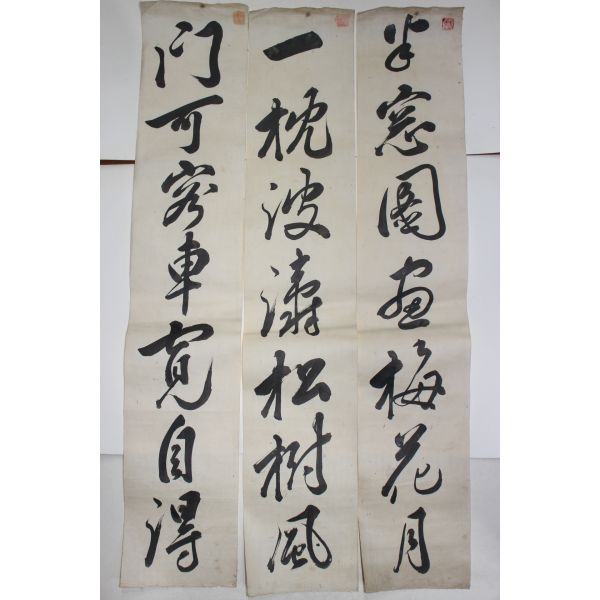 半窓圖画梅花月
一枕波濤松樹風
门可容車寬自得